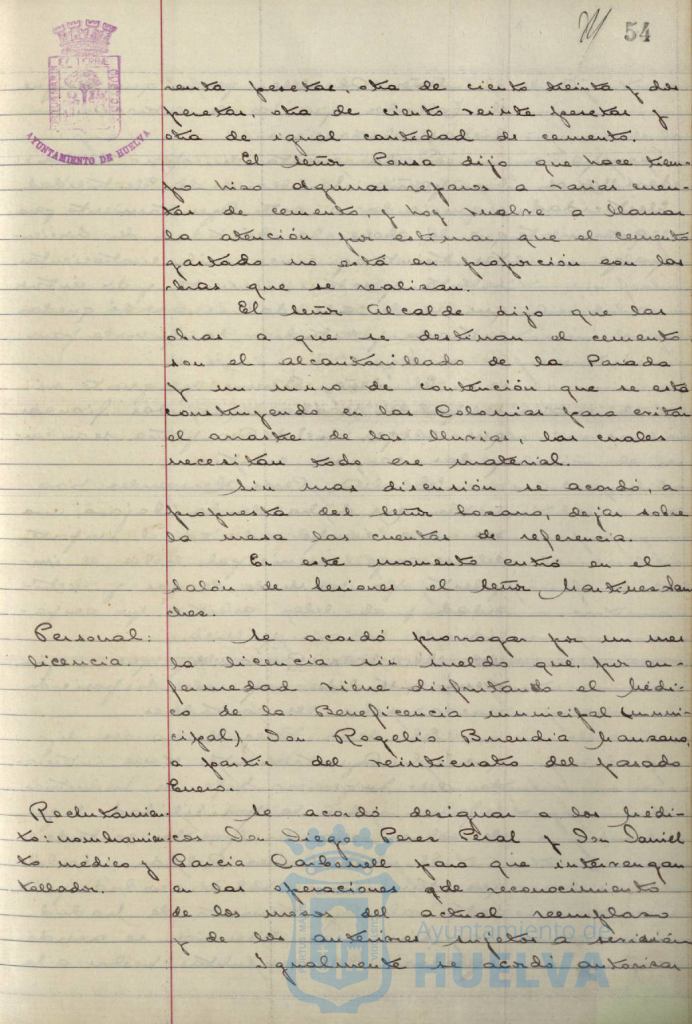 54
AYUNTAMIENTO DE HUELVA
renta pesetas, otra de ciento treinta y dos
pesetas, otra de ciento veinte pesetas y
otra de igual cantidad de cemento.
El señor Ponsa dijo que hace tiem-
po hizo algunos reparos a varias cuen-
tas de cemento, y hoy vuelve a llamar
la atención por estimar que el cemento
gastado no está en proporción con las
obras que se realizan.
El señor Alcalde dijo que las
obras a que se destinan el cemento
son el alcantarillado de la Parada
y un muro de contención que se está
construyendo en las Colonias para evitar
el arrastre de las lluvias, las cuales
necesitan todo ese material.
Sin mas discusión se acordó, a
propuesta del señor Lozano, dejar sobre
la mesa las cuentas de referencia.
En este momento entró en el
salón de sesiones el señor Martinez San-
chez.
Personal:
licencia.
Se acordó prorrogar por un mes
la licencia sin sueldo que, por en-
fermedad viene disfrutando el Médi-
co de la Beneficencia municipal (muni-
cipal) Don Rogelio Buendia Manzano,
a partir del veinticuatro del pasado
Enero.
Reclutamien-
to: nombramien-
to médico y
tallador.
Se acordó designar a los Médi-
cos Don Diego Perez Peral y Don Daniel
Garcia Carbonell para que intervengan
en las operaciones de reconocimiento
de los mozos del actual reemplazo
y de los anteriores sujetos a revisión
Igualmente se acordó autorizar
Ayuntamiento de
HUELVA